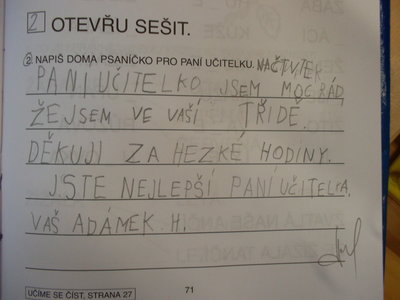 2 OTEVŘU SEŠIT.
2 NAPIŠ DOMA PSANÍČKO PRO PANÍ UČITELKU.
PANÍ UČITELKO JSEM MOC RÁD
ŽE JSEM VE VAŠÍ TŘÍDĚ.
DĚKUJI ZA HEZKÉ HODINY.
JSTE NEJLEPŠÍ PANÍ UČITELKA.
VAŠ ADÁMEK. H.
71
UČÍME SE ČÍST, STRANA 27